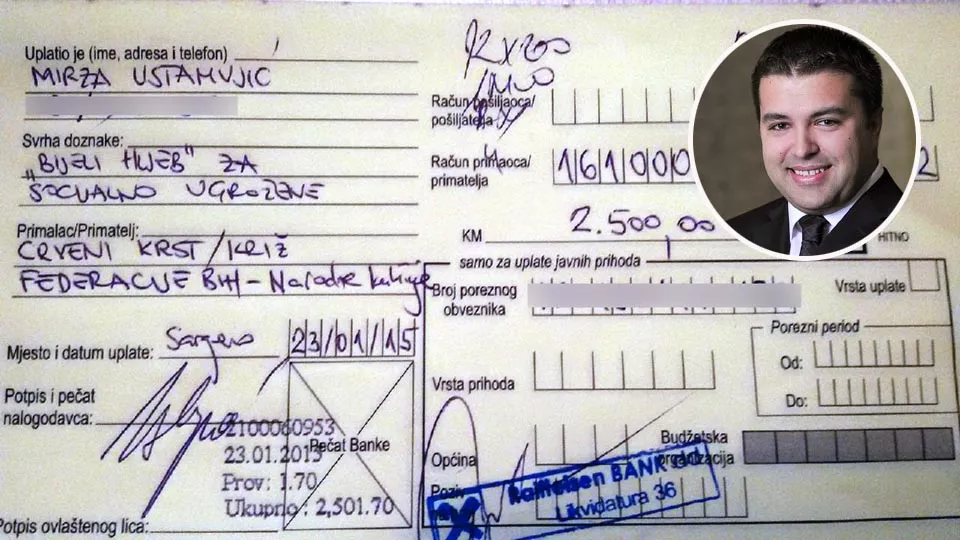 Uplatio je (ime, adresa i telefon)
MIRZA USTAMUJIĆ
Svrha doznake:
„BIJELI HLJEB" ZA
SOCIJALNO UGROŽENE
Primalac/Primatelj:
CRVENI KRST/KRIŽ
FEDERACIJE BIH - Narodne kuhinje
Mjesto i datum uplate: Sarajevo 23/01/15
Potpis i pečat
nalogodavca:
2100060953
Pečat Banke
23.01.2015
Prov: 1.70
Ukupno: 2,501.70
Potpis ovlaštenog lica:
12x200
Račun pošiljaoca/
pošiljatelja
Račun primaoca/
primatelja
161000
2
KM 2.500,00
HITNO
samo za uplate javnih prihoda
Broj poreznog
obveznika
Vrsta uplate
Porezni period
Od:
Do:
Vrsta prihoda
Općina
Budžetska
organizacija
Poziv
Raiffeisen BANK
Likvidatura 36